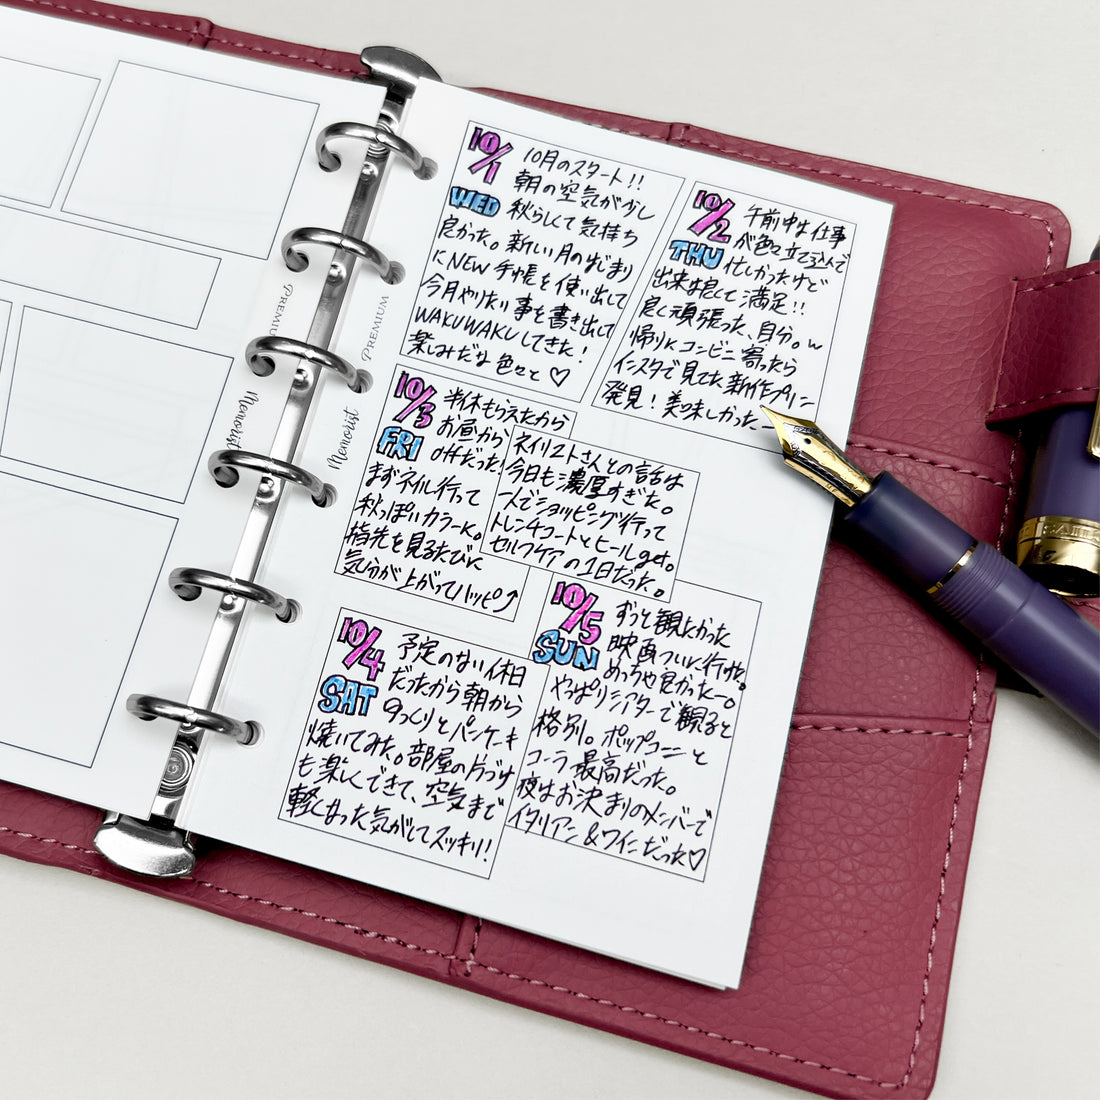 10/1
WED
10月のスタート!!
朝の空気が少し
秋らしくて気持ち
良かった。新しい月のはじまり
にNEW手帳を使い出して
今月やりたい事を書き出して
WAKUWAKUしてきた!
楽しみだな色々と♡
10/2
THU
午前中は仕事
が色々立て込んで
忙しかったけど
出来は良くて満足!!
良く頑張った、自分。w
帰りにコンビニ寄ったら
インスタで見てた新作プリン
発見!美味しかったー
10/3
FRI
半休もらえたから
お昼から
offだった!
まずネイル行って
秋っぽいカラーに。
指先を見るたびに
気分が上がってハッピ↗
ネイリストさんとの話は
今日も濃厚すぎた。
一人でショッピング行って
トレンチコートとヒールget。
セルフケアの1日だった。
10/4
SAT
予定のない休日
だったから朝から
ゆっくりとパンケーキ
焼いてみた。部屋の片づけ
も楽しくできて、空気まで
軽くなった気がしてスッキリ!
10/5
SUN
ずっと観たかった
映画ついに行けた。
めっちゃ良かったー。
やっぱりシアターで観ると
格別。ポップコーンと
コーラ最高だった。
夜はお決まりのメンバーで
イタリアン&ワインだった♡
PREMIUM
Memorist
PREMIUM
Memorist